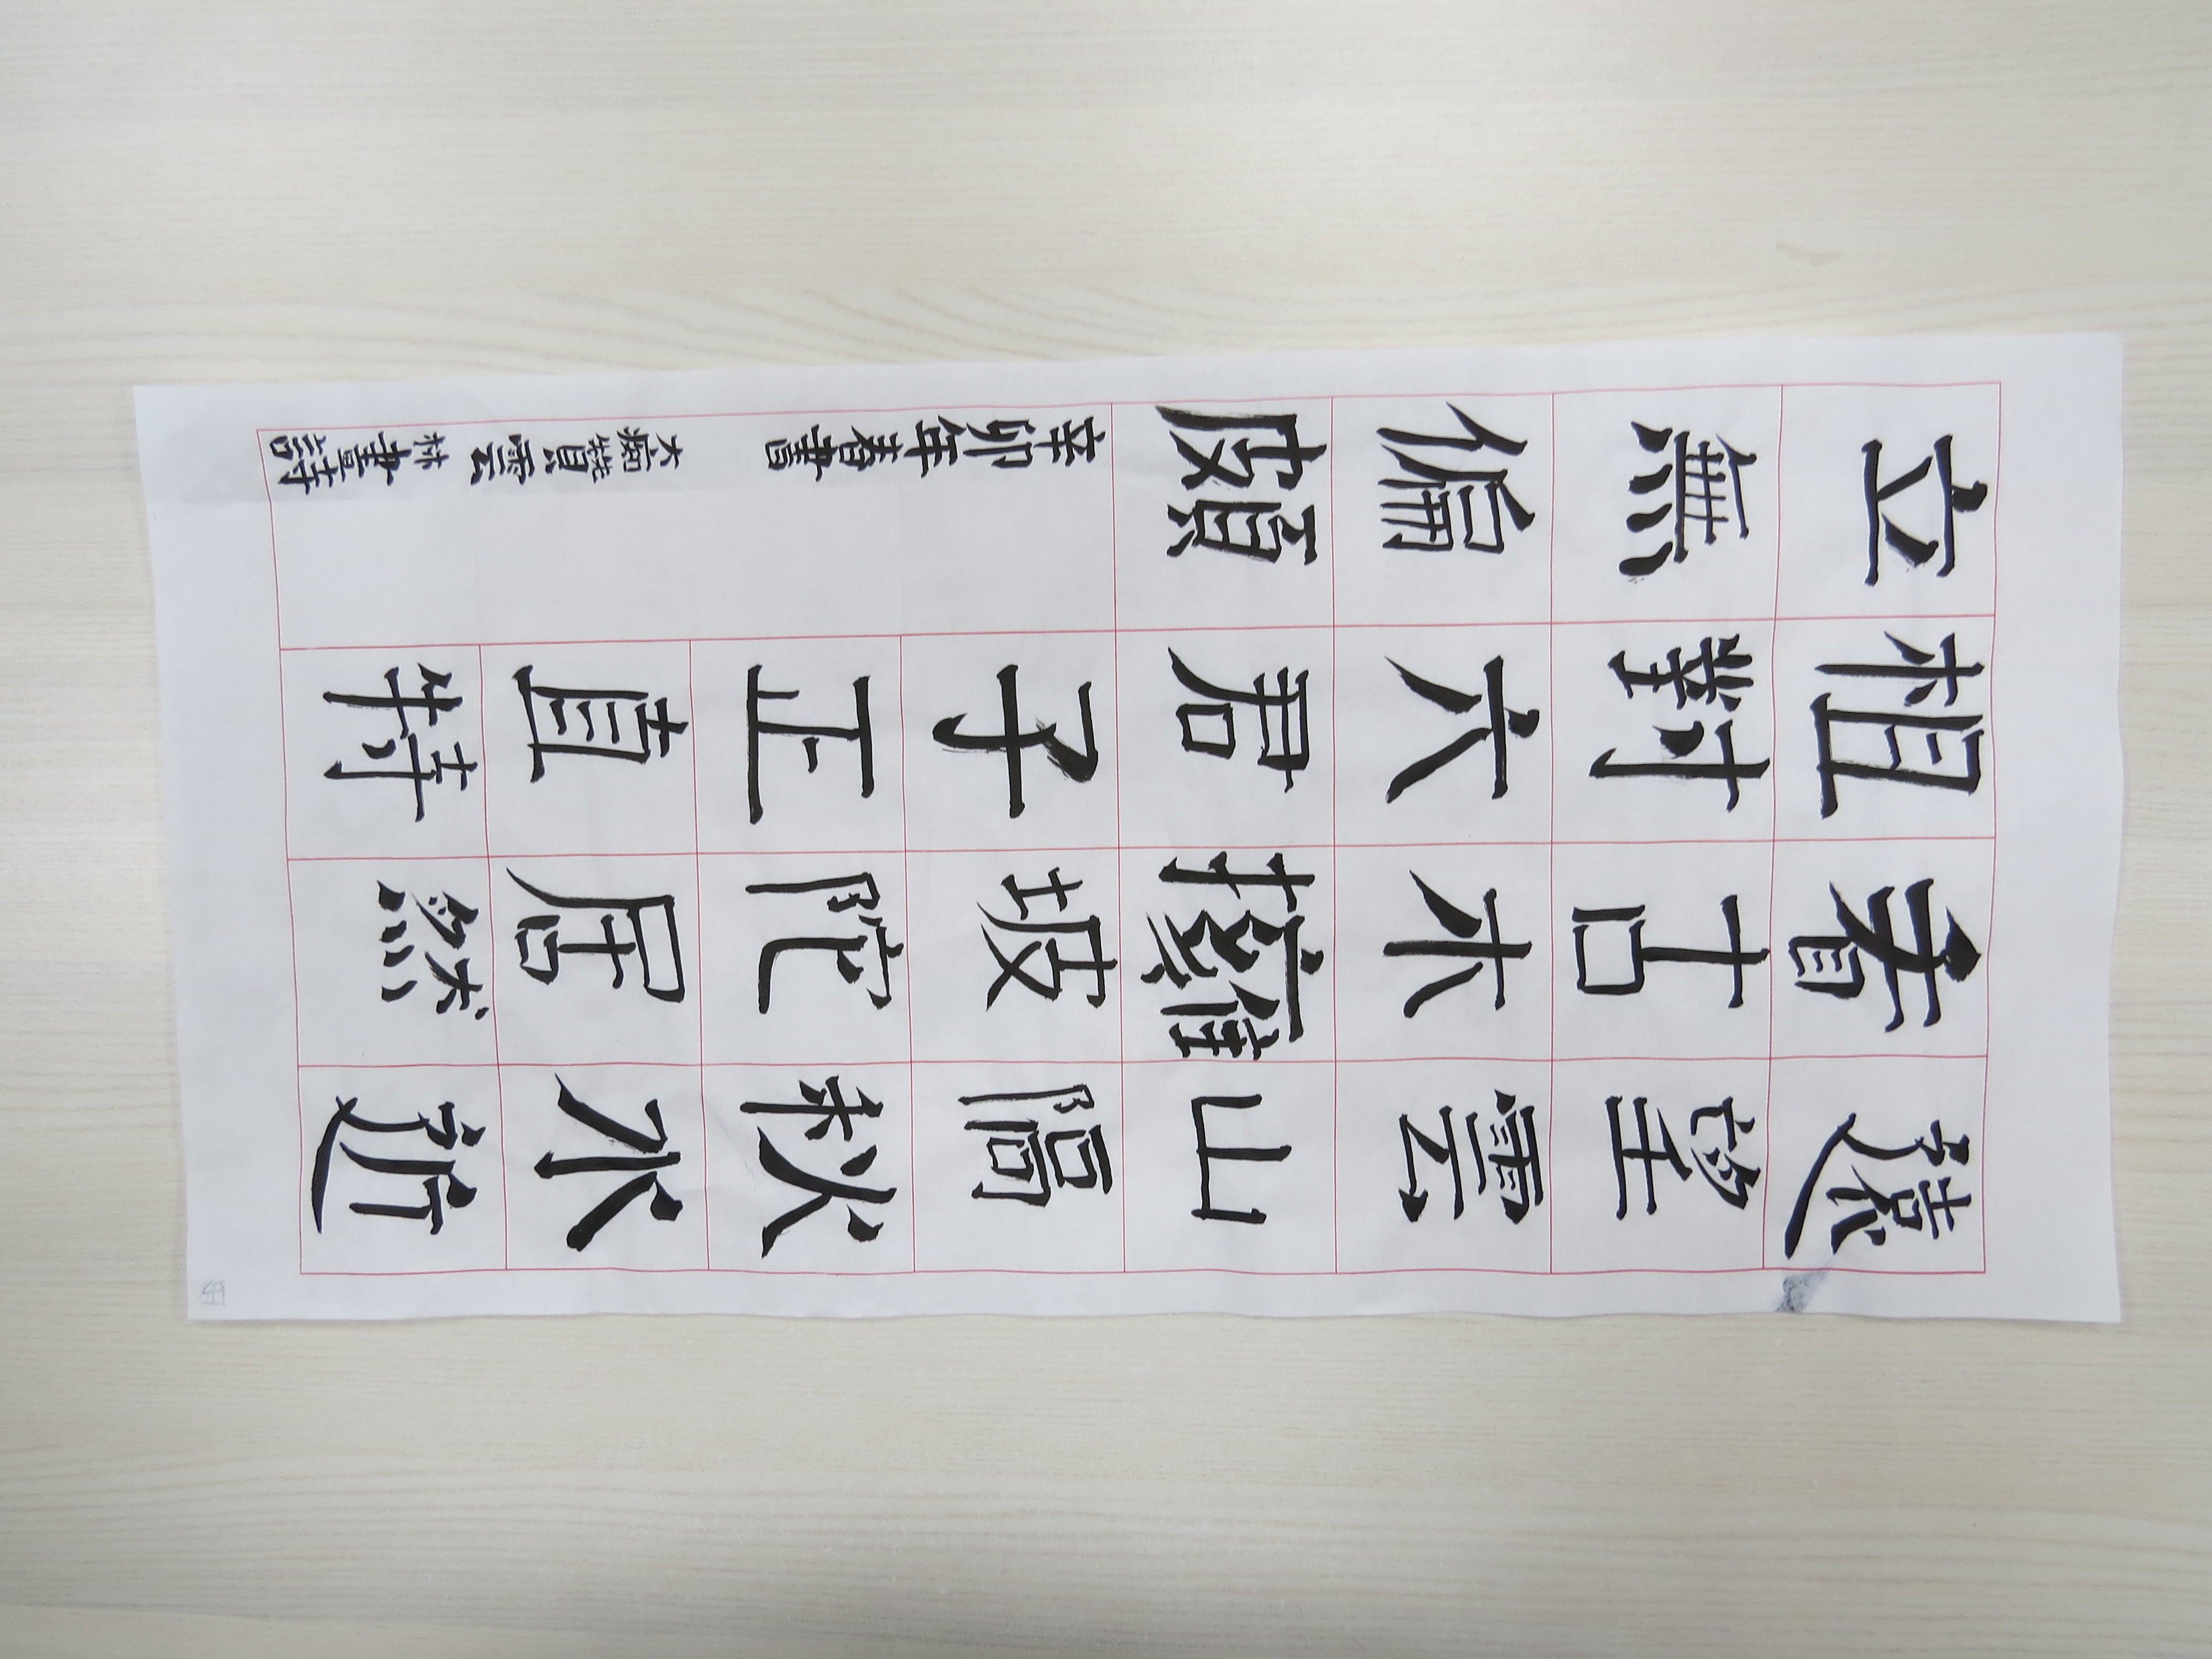 遠望雲山隔秋水近
看古木擁坡陀居然
相對六君子正直特
立無偏頗
辛卯年春書 大痴贊雲林畫詩